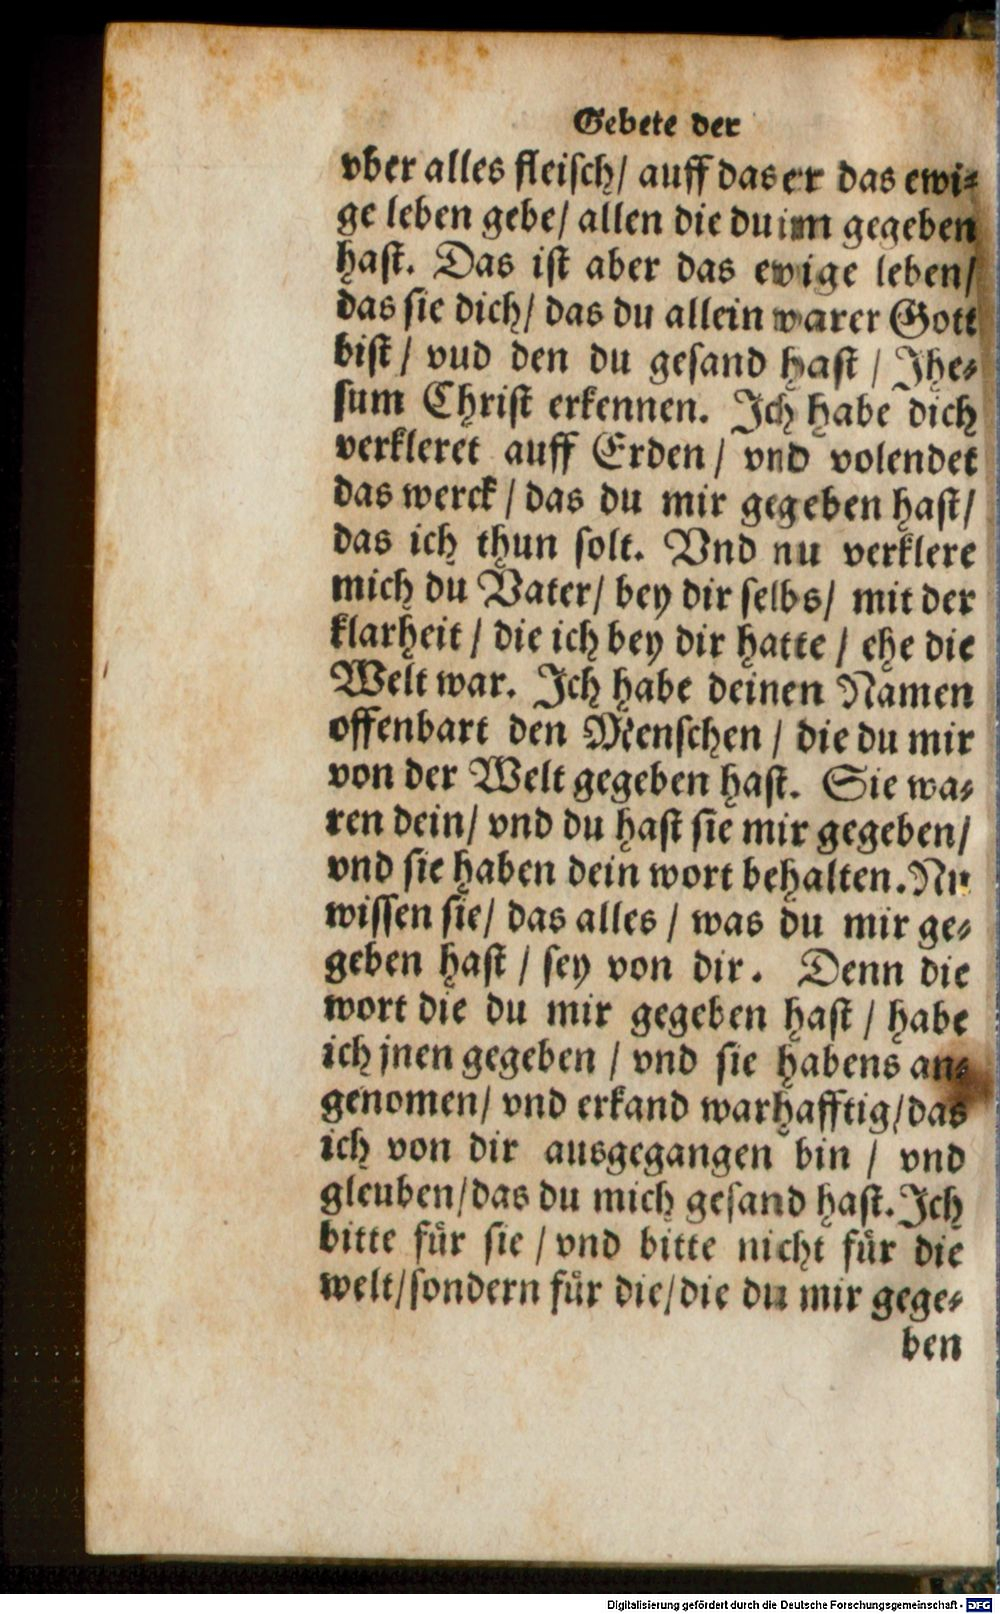 Gebete der
vber alles fleisch/ auff das er das ewi-
ge leben gebe/ allen die du im gegeben
hast. Das ist aber das ewige leben/
das sie dich/ das du allein warer Gott
bist/ vud den du gesand hast/ Jhe-
sum Christ erkennen. Jch habe dich
verkleret auff Erden/ vnd volendet
das werck/ das du mir gegeben hast/
das ich thun solt. Vnd nu verklere
mich du Vater/ bey dir selbs/ mit der
klarheit/ die ich bey dir hatte/ ehe die
Welt war. Jch habe deinen Namen
offenbart den Menschen/ die du mir
von der Welt gegeben hast. Sie wa-
ren dein/ vnd du hast sie mir gegeben/
vnd sie haben dein wort behalten. Nu
wissen sie/ das alles/ was du mir ge-
geben hast/ sey von dir. Denn die
wort die du mir gegeben hast/ habe
ich jnen gegeben/ vnd sie habens an-
genomen/ vnd erkand warhafftig/ das
ich von dir ausgegangen bin/ vnd
gleuben/ das du mich gesand hast. Jch
bitte fuͤr sie/ vnd bitte nicht fuͤr die
welt/ sondern fuͤr die/ die du mir gege-
ben
Digitalisierung gefördert durch die Deutsche Forschungsgemeinschaft - DFG